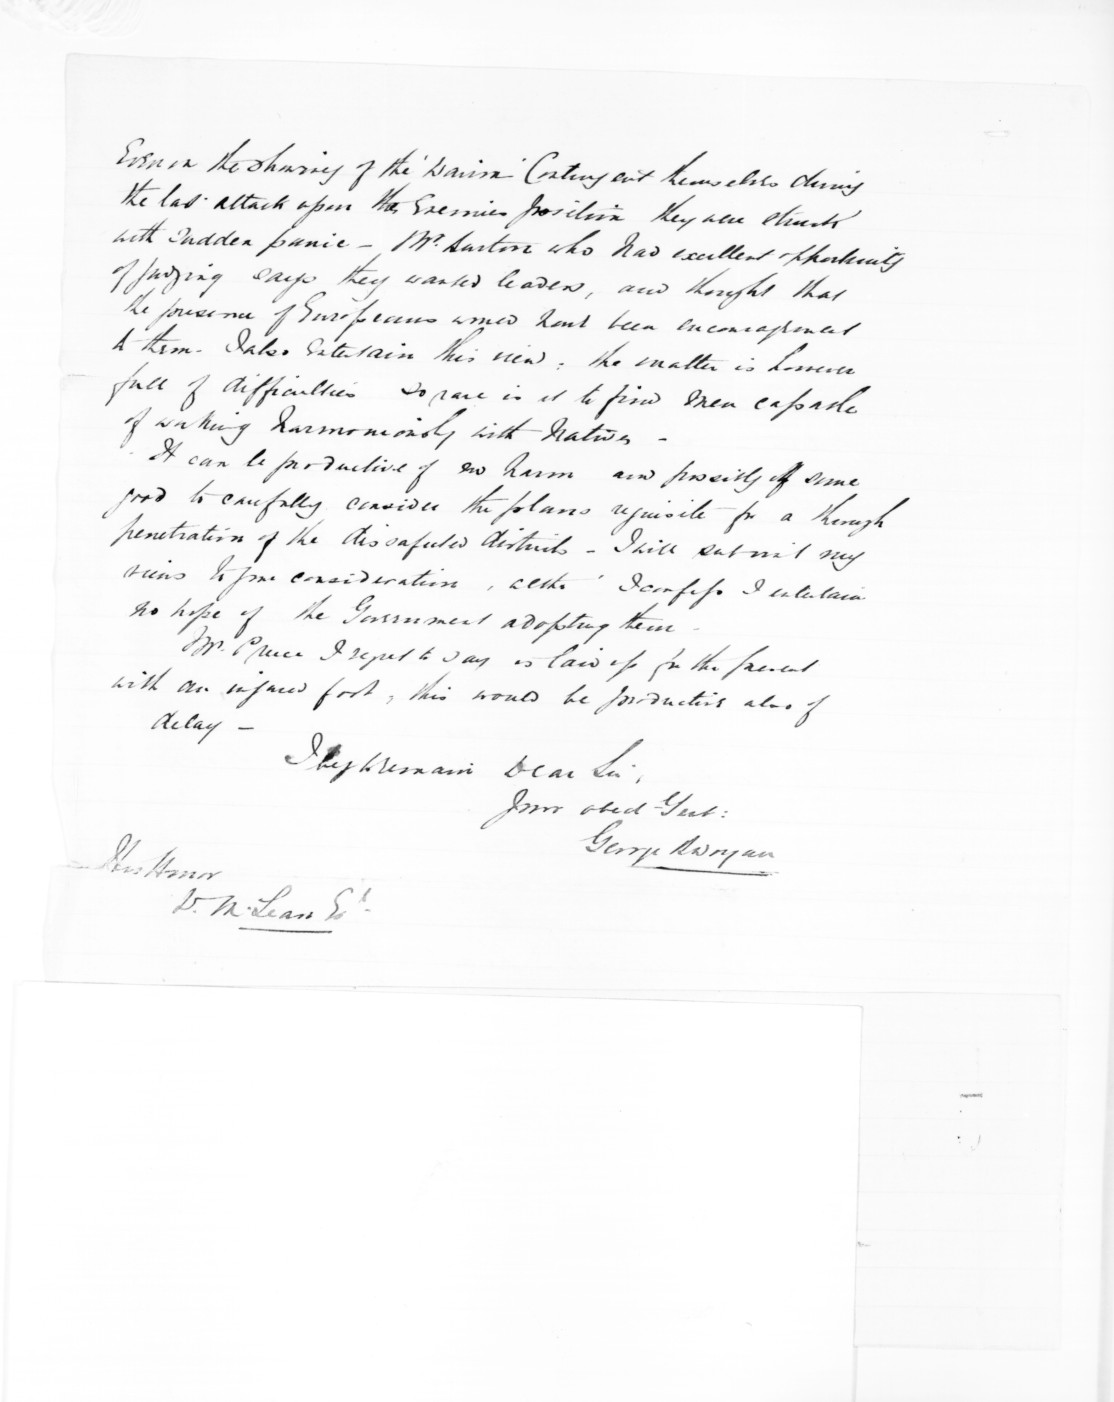 Even on the showing of the Wairoa Contingent themselves during
the last attack upon the Enemies position they were struck
with sudden panic – Mr. Burton who had excellent opportunity
of judging says they wanted leaders, and thought that
the presence of Europeans would have been encouragement
to them. I also entertain this view; the matter is however
full of difficulties so rare is it to find men capable
of working harmoniously with Natives –
It can be productive of no harm and possibly of some
good to carefully consider the plans requisite for a thorough
penetration of the dissafected districts – I will submit my
views to your consideration, altho' I confess I entertain
no hope of the Government adopting them –
Mr. Preece I regret to say is laid up for the present
with an injured foot, this would be productive also of
delay –
I beg to remain Dear Sir,
Your obed Sert:
George A Worgan
His Honor
D. McLean Esq.